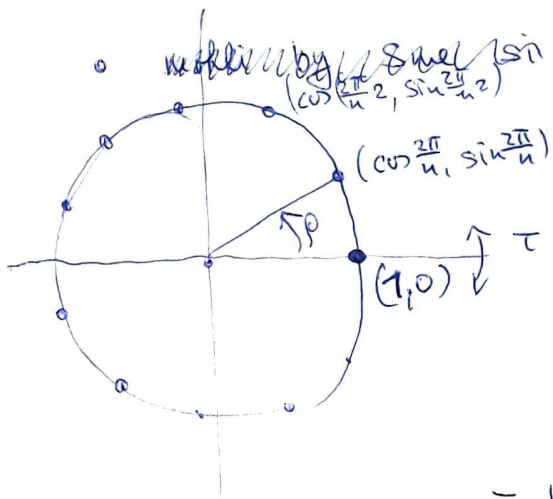 (cos 2π/n 2, sin 2π/n 2)
(cos 2π/n, sin 2π/n)
ρ
τ
(1,0)